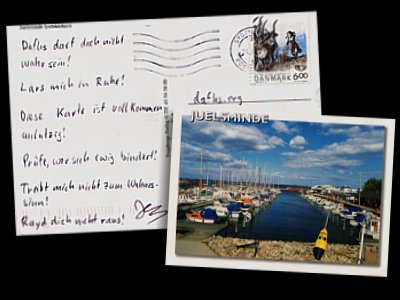 Daflus darf doch nicht
wahr sein!
Lars mich in Ruhe!
Diese Karte ist vollkommen
unnützg!
Prüfe, wer sich ewig bindert!
Treibt mich nicht zum Wahnes-
sinn!
Rayd dich nicht raus!
DANMARK 6.00
dafhs.org
JUELSMINDE